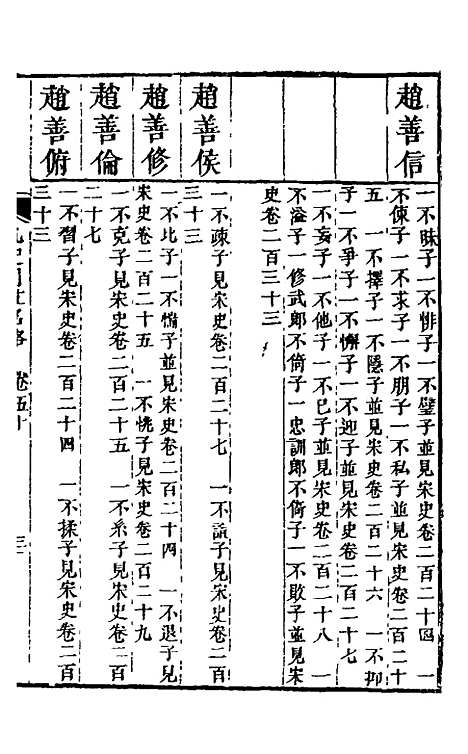 趙善信
一不昧子一不悱子一不璧子並見宋史卷二百二十四 一
不倲子一不求子一不朋子一不私子並見宋史卷二百二十
五 一不擇子一不隱子並見宋史卷二百二十六 一不抑
子一不爭子一不懈子一不迎子並見宋史卷二百二十七
一不妄子一不他子一不已子並見宋史卷二百二十八 一
不溢子一修武郎不倚子一忠訓郎不倚子一不敗子並見宋
史卷二百三十三
趙善侯
一不疎子見宋史卷二百二十七 一不 子見宋史卷二百
三十三
趙善修
一不比子一不 子並見宋史卷二百二十四 一不退子見
宋史卷二百二十五 一不恌子見宋史卷二百二十九
趙善倫
一不克子見宋史卷二百二十五 一不系子見宋史卷二百
二十七
趙善俯
一不㗖子見宋史卷二百二十四 一不揉子見宋史卷二百
三十三
九史同姓名略 卷五十 三